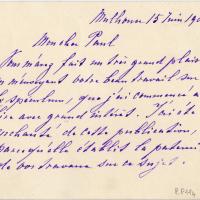 Mulhouse 15 Juin 190
Mon cher Paul
Vous m'avez fait un très grand plaisir
en m'envoyant votre beau travail sur
le spasntum, que j'ai commencé à
lire avec grand intérêt. J'ai été
enchanté de cette publication,
parcequ'elle établit la paternité
de vos travaux sur ce sujet.
P.P494